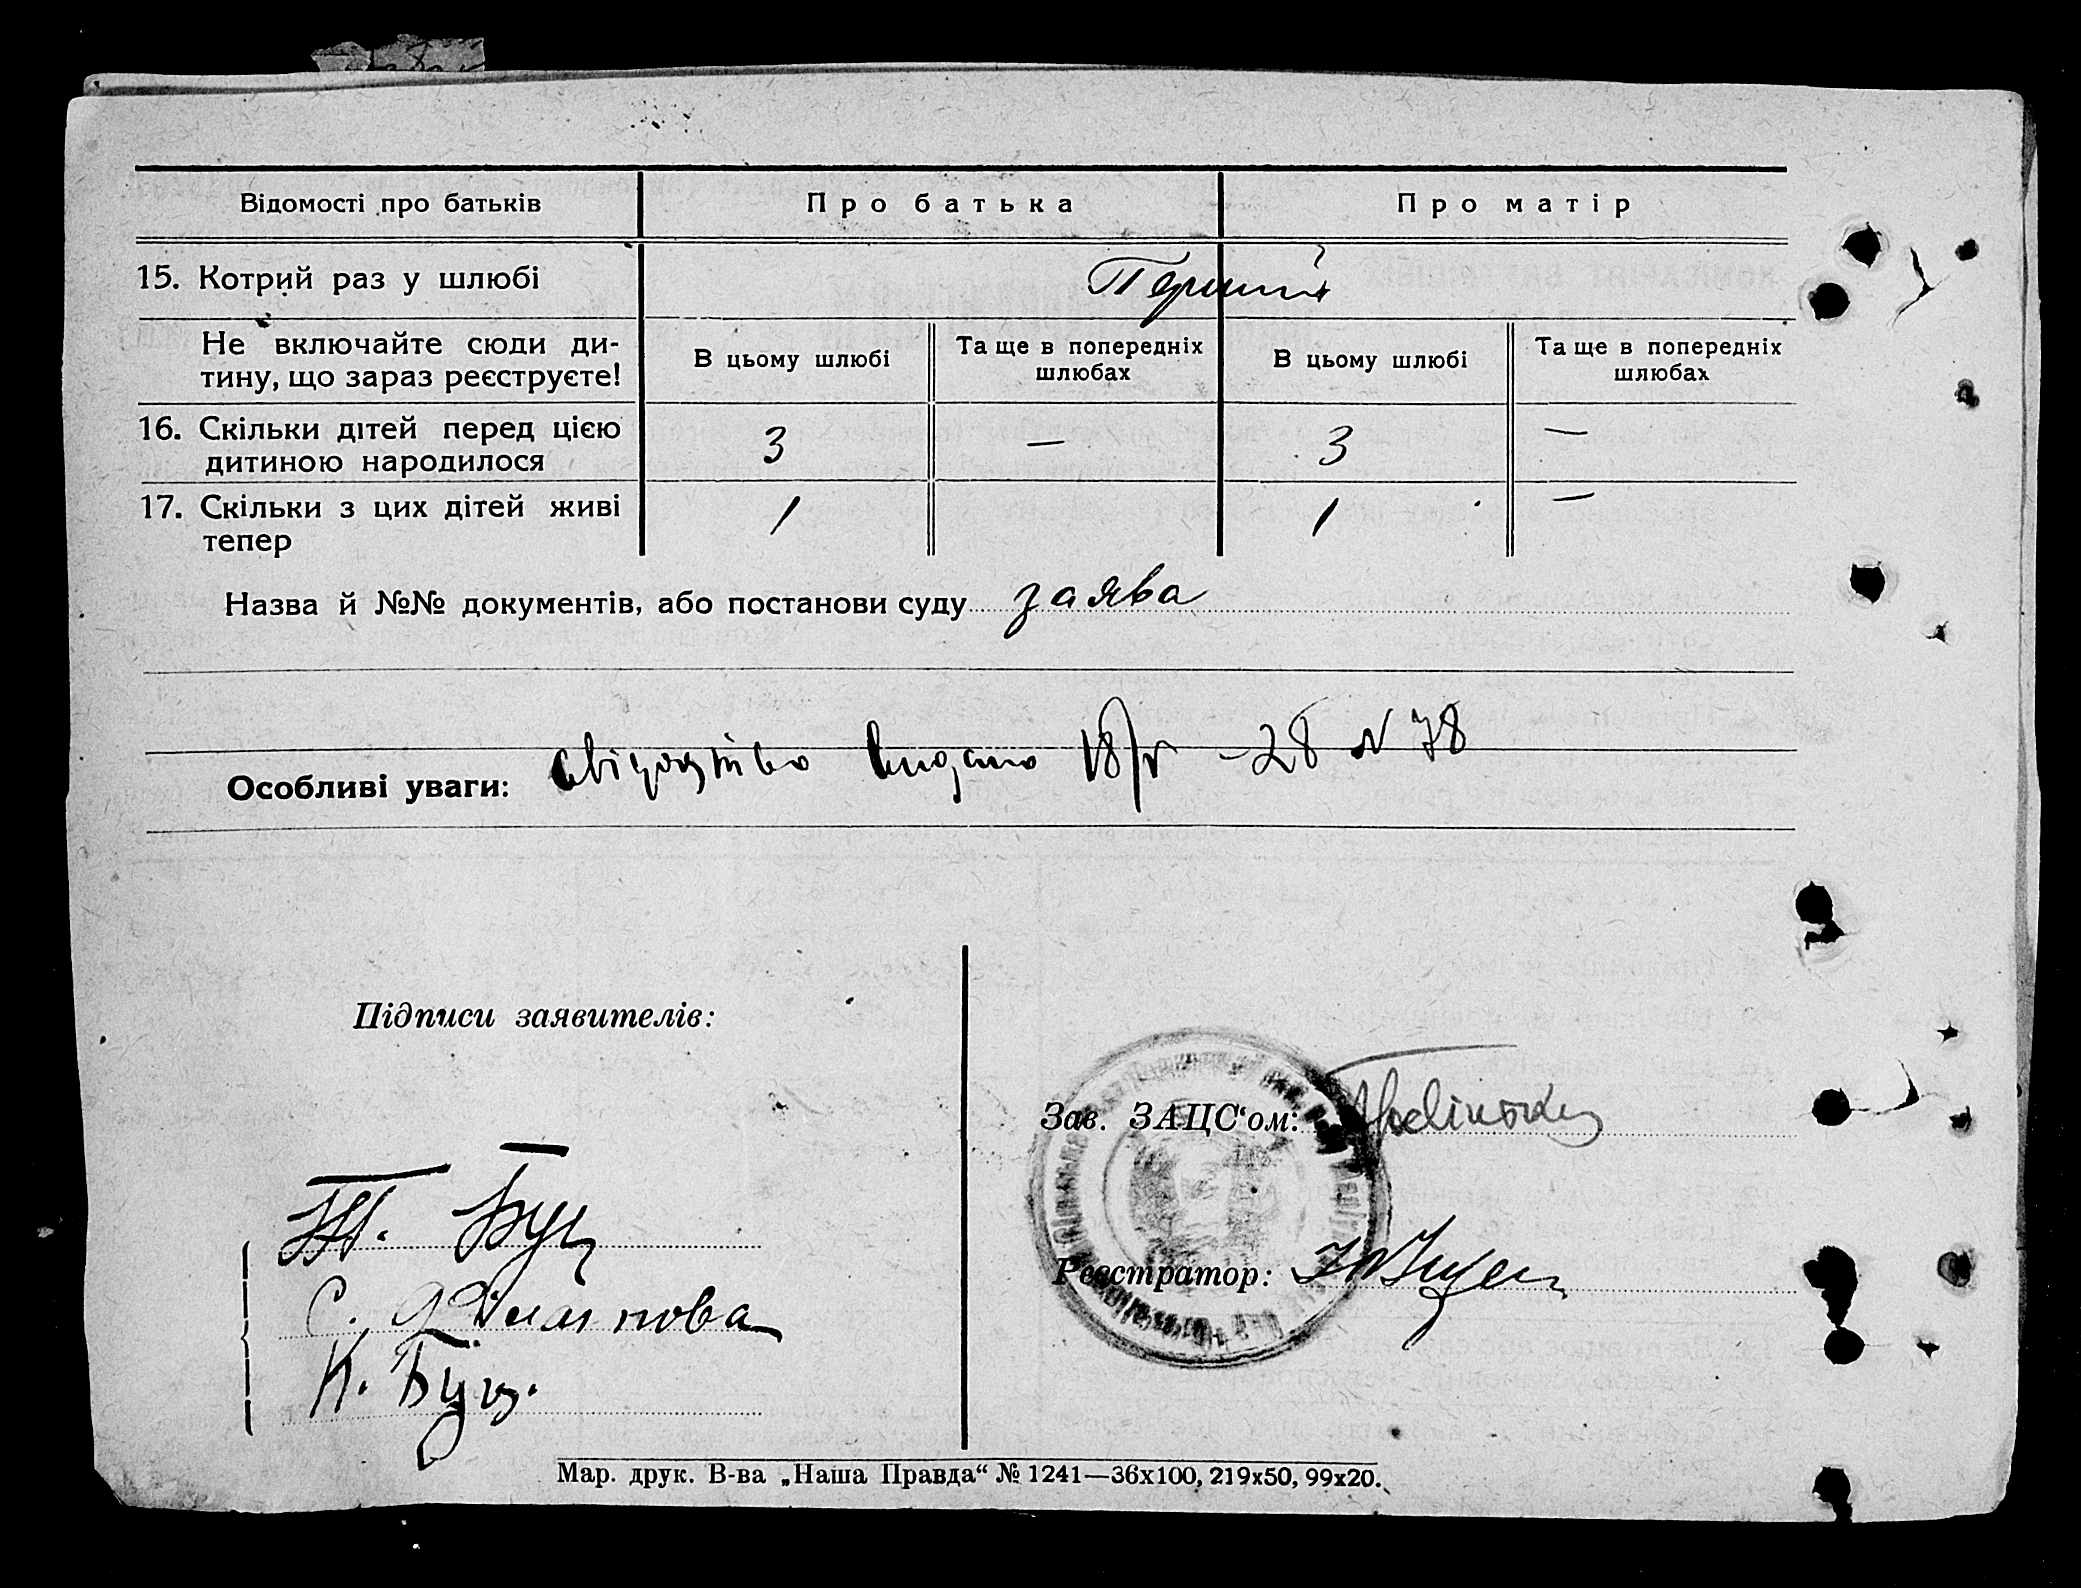 Відомості про батьків Про батька Про матір
15. Котрий раз у шлюбі Перший
Не включайте сюди ди-
тину, що зараз реєструєте!
В цьому шлюбі Та ще в попередніх шлюбах В цьому шлюбі Та ще в попередніх шлюбах
16. Скільки дітей перед цією
дитиною народилося 3 — 3 —
17. Скільки з цих дітей живі
тепер 1 1 —
Назва й №№ документів, або постанови суду заява
Особливі уваги: свідоцтво видано 18/V -28 N 78
Підписи заявителів:
Зав. ЗАЦС‘ом:
Буц
Реєстратор:
С.
К. Буц.
Мар. друк. В-ва „Наша Правда“ № 1241—36х100, 219х50, 99х20.